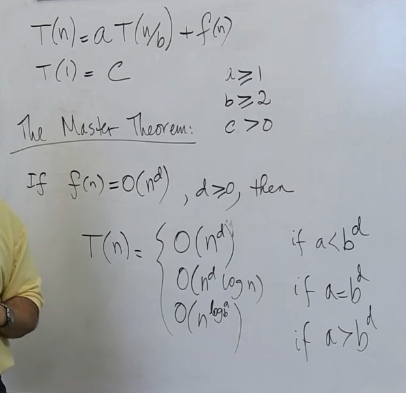 T(n) = a T(n/b) + f(n)
T(1) = C
i ≥ 1
b ≥ 2
c > 0
The Master Theorem:
If f(n) = O(n^d), d ≥ 0, then
T(n) = { O(n^d) if a < b^d
O(n^d log n) if a = b^d
O(n^{log_b a}) if a > b^d